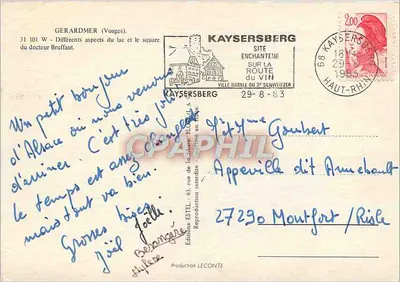 GERARDMER (Vosges).
31 101 W - Différents aspects du lac et le square
du docteur Bruffaut.
KAYSERSBERG
SITE
ENCHANTEUR
SUR LA
ROUTE
du VIN
VILLE NATALE DU Dr SCHWEITZER
KAYSERSBERG 29-8-83
68 KAYSERSBERG
18H
29-8
1983
HAUT-RHIN
2,00
Un petit bonjour
d'Alsace où nous venons
d'arriver. C'est très joli
le temps est assez changeant
mais tout va bien.
Grosses bises
Joël
Joëlle
Bérangère
Mylène
CPARAMA
Editions ESTEL - 63, rue de
Reproduction interdite
Mr et Mme Goubert
Appeville dit Annebault
27290 Montfort / Risle
Production LECONTE